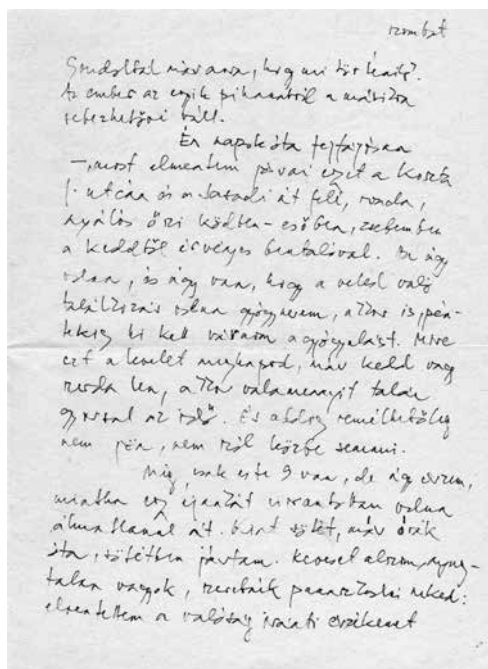 szombat
Gondoltál már arra, hogy mi történik?
Az ember az egyik pillanatról a másikra
sebezhetővé vált.
Én napok óta fejfájósan
–, most elmentem járni egyet a Koszta
J. utcán és a Saradi út felé, ronda,
nyálós őszi ködben-esőben, zsebemben
a keddtől érvényes beutalóval. Ha úgy
volna, és úgy van, hogy a veled való
találkozás volna gyógyszerem, akkor is pén-
tekig ki kell várnom a gyógyulást. Mire
ezt a levelet megkapod, már kedd vagy
szerda lesz, akkor valamennyit talán
gyorsul az idő. És addig remélhetőleg
nem jön, nem szól közbe semmi.
Még csak este 9 van, de úgy érzem,
mintha egy éjszakát virrasztottam volna
álmatlanul át. Kint sötét, már órák
óta, sötétben jártam. Keveset alszom, nyug-
talan vagyok, szeretnék panaszkodni neked:
elvesztettem a valóság iránti érzékemet